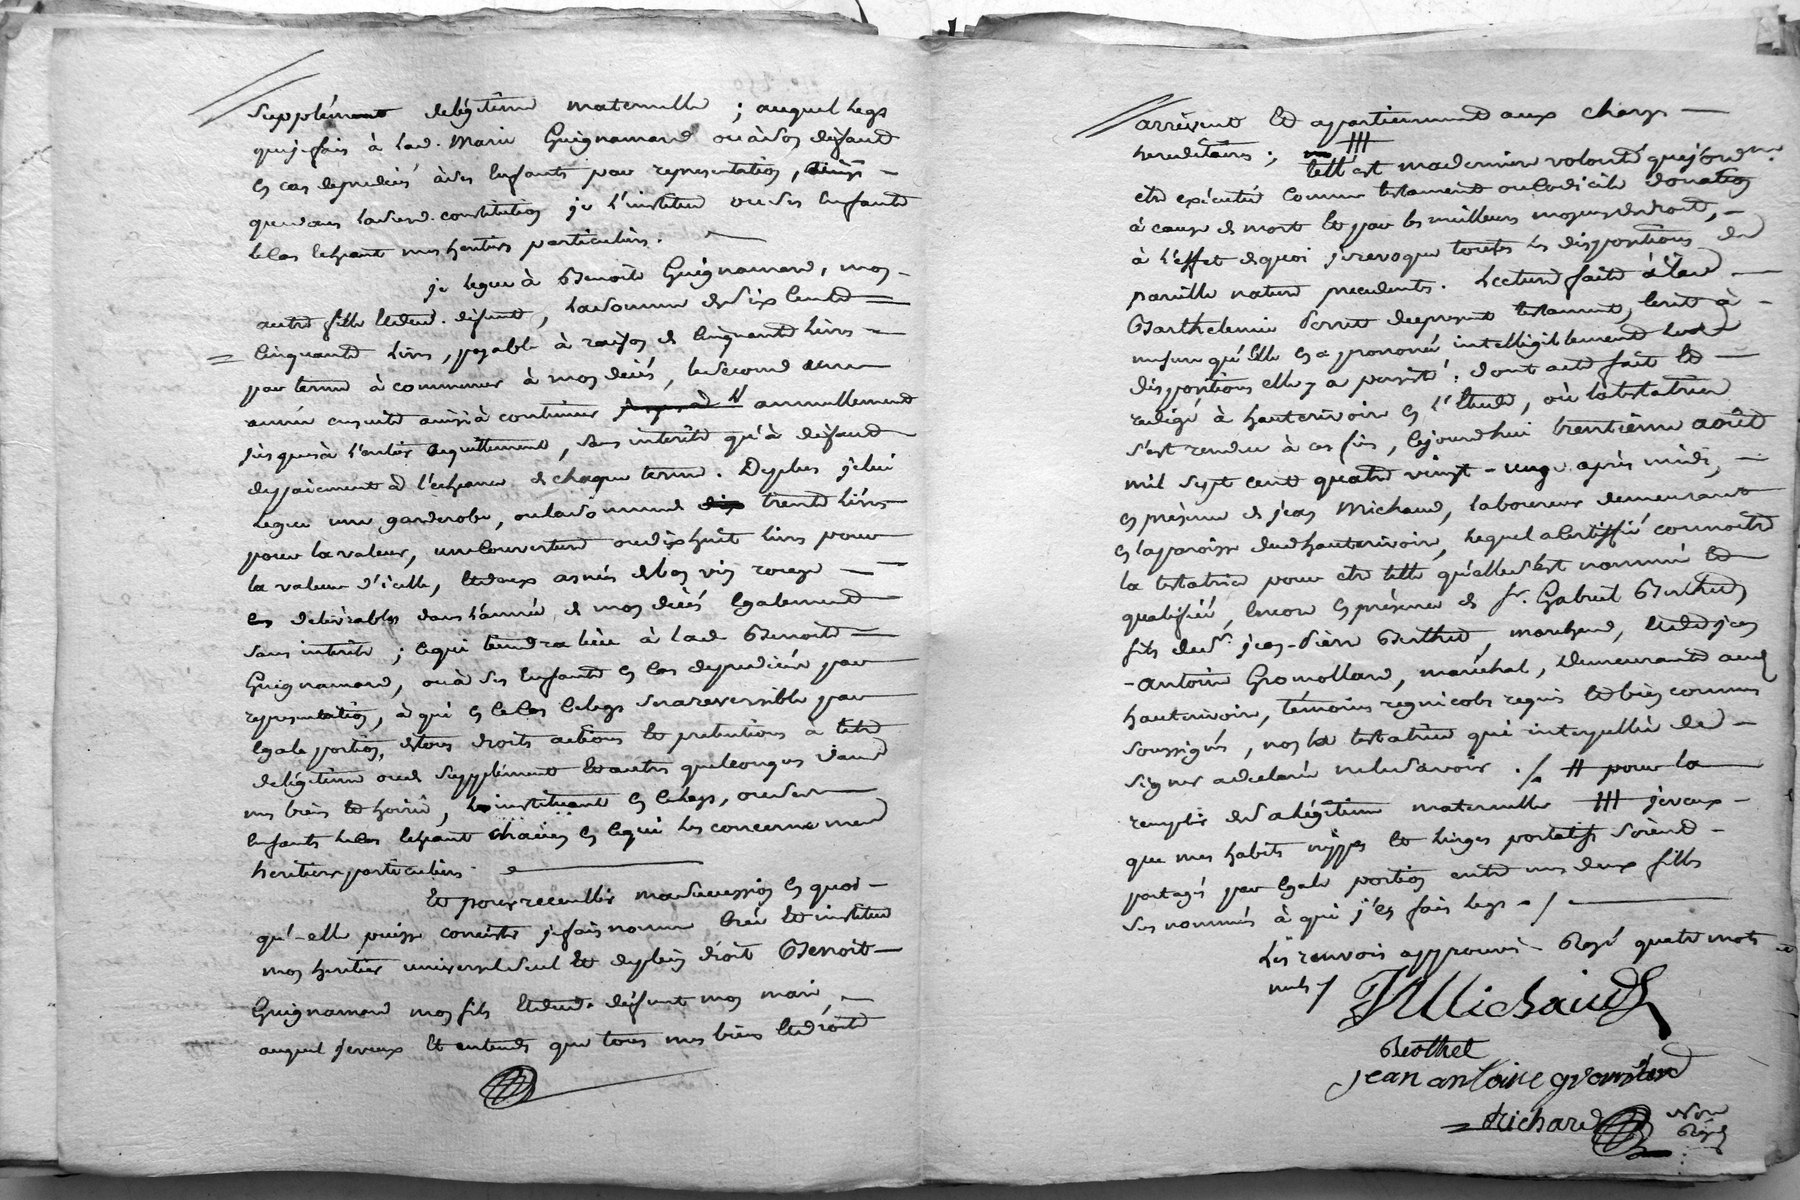 supplément de légitime maternelle ; auquel legs
que je fais à lad. Marie Guignamard ou à son deffaut
en cas de predecès à ses enfants par representation, ainsi
que dans lad. constitution je l'institue ou ses enfants
le cas echeant mes heritiers particuliers.
je legue à Benoite Guignamard, mon
autre fille et dud. défunt, la somme de six cent
cinquante livres, payable à raison de cinquante livres
par terme à commencer à mon décès, le second une
année ensuite ainsi à continuer # annuellement
jusques à l'entier acquittement, sans interêts qu'à deffaut
de paiement à l'echeance de chaque terme. De plus je lui
legue une garderobe, ou la somme de trente livres
pour la valeur, une couverture ou dix huit livres pour
la valeur d'icelle, et deux asnées de bon vin rouge
délivrables dans l'année de mon décès également
sans interêts ; ce qui tiendra lieu à lad. Benoite
Guignamard, ou à ses enfants en cas de predecès par
representation, à qui en ce cas le legs sera reversible par
egale portion, de tous droits actions et pretentions à titre
de légitime ou de supplément et autres quelconques dans
mes biens et hoirie, l'instituant en ce legs, ou ses
enfants le cas echeant chacun en ce qui les concerne mes
heritiers particuliers.
Et pour recueillir ma succession en quoi
qu'elle puisse consister je fais nomme crée et institue
mon heritier universel seul et de plein droit Benoit
Guignamard mon fils et dud. défunt mon mari,
auquel je veux et entends que tous mes biens et droits
arrivent et appartiennent aux charges
hereditaires ; ///
telle est ma derniere volonté que j'ordonne
etre exécutée comme testament ou codicile donation
à cause de mort et par les meilleurs moyens de droit,
à l'effet de quoi je revoque toutes les dispositions de
pareille nature precedentes. Lecture faite à lad.
Barthelemie Perret du present testament, ecrit à
mesure qu'elle en a prononcé intelligiblement les
dispositions elle y a persisté : dont acte fait et
redigé à hauterivoire en l'Etude, où la testatrice
s'est rendue à ces fins, cejourd'hui trentieme août
mil sept cent quatre vingt-un après midi,
en présence de jean Michaud, laboureur demeurant
en la paroisse dud. hauterivoire, lequel a certiffié connoitre
la testatrice pour etre telle qu'elle s'est nommée et
qualifiée, encore en présence de sr. Gabriel Berthet
fils de sr. jean-Pierre Berthet, marchand, et de jean
-antoine Gromollard, maréchal, demeurants aud.
hauterivoire, témoins regnicoles requis et bien connus
soussignés, non la testatrice qui interpellée de
signer a declaré ne le savoir ./. # pour la
remplir de sa légitime maternelle /// je veux
que mes habits nippes et linges portatifs soient
partagés par egale portion entre mes deux filles
sus nommées à qui j'en fais legs -/
Les renvois approuvés. Rayé quatre mots
nuls /
J Michaud
Berthet
jean antoine gromolard
Richard
Nore
Royal